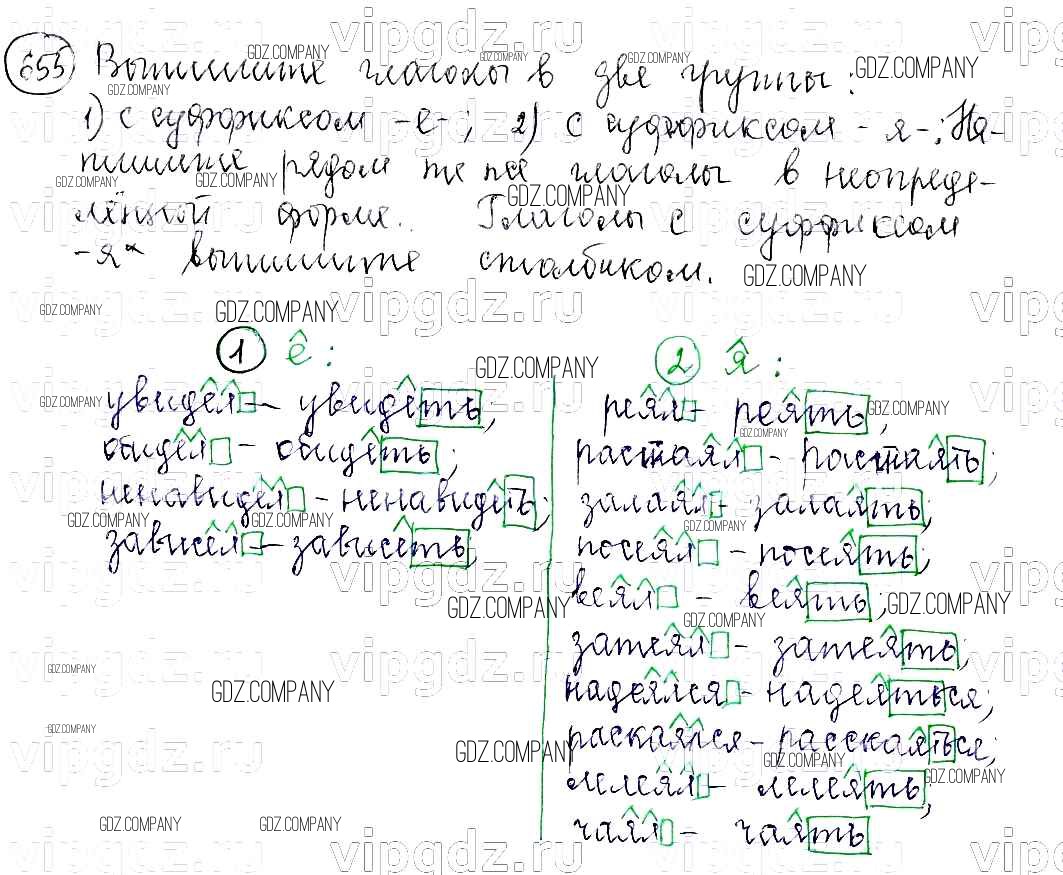 655 Выпишите глаголы в две группы:
1) с суффиксом -е-; 2) с суффиксом -я-. На-
пишите рядом те же глаголы в неопреде-
лённой форме. Глаголы с суффиксом
-я- выпишите столбиком.
1 е:
увидел - увидеть;
обидел - обидеть;
ненавидел - ненавидеть;
зависел - зависеть;
2 я:
реял - реять;
растаял - растаять;
залаял - залаять;
посеял - посеять;
веял - веять;
затеял - затеять;
надеялся - надеяться;
раскаялся - расскаяться;
лелеял - лелеять;
чаял - чаять
GDZ.COMPANY
vipgdz.ru